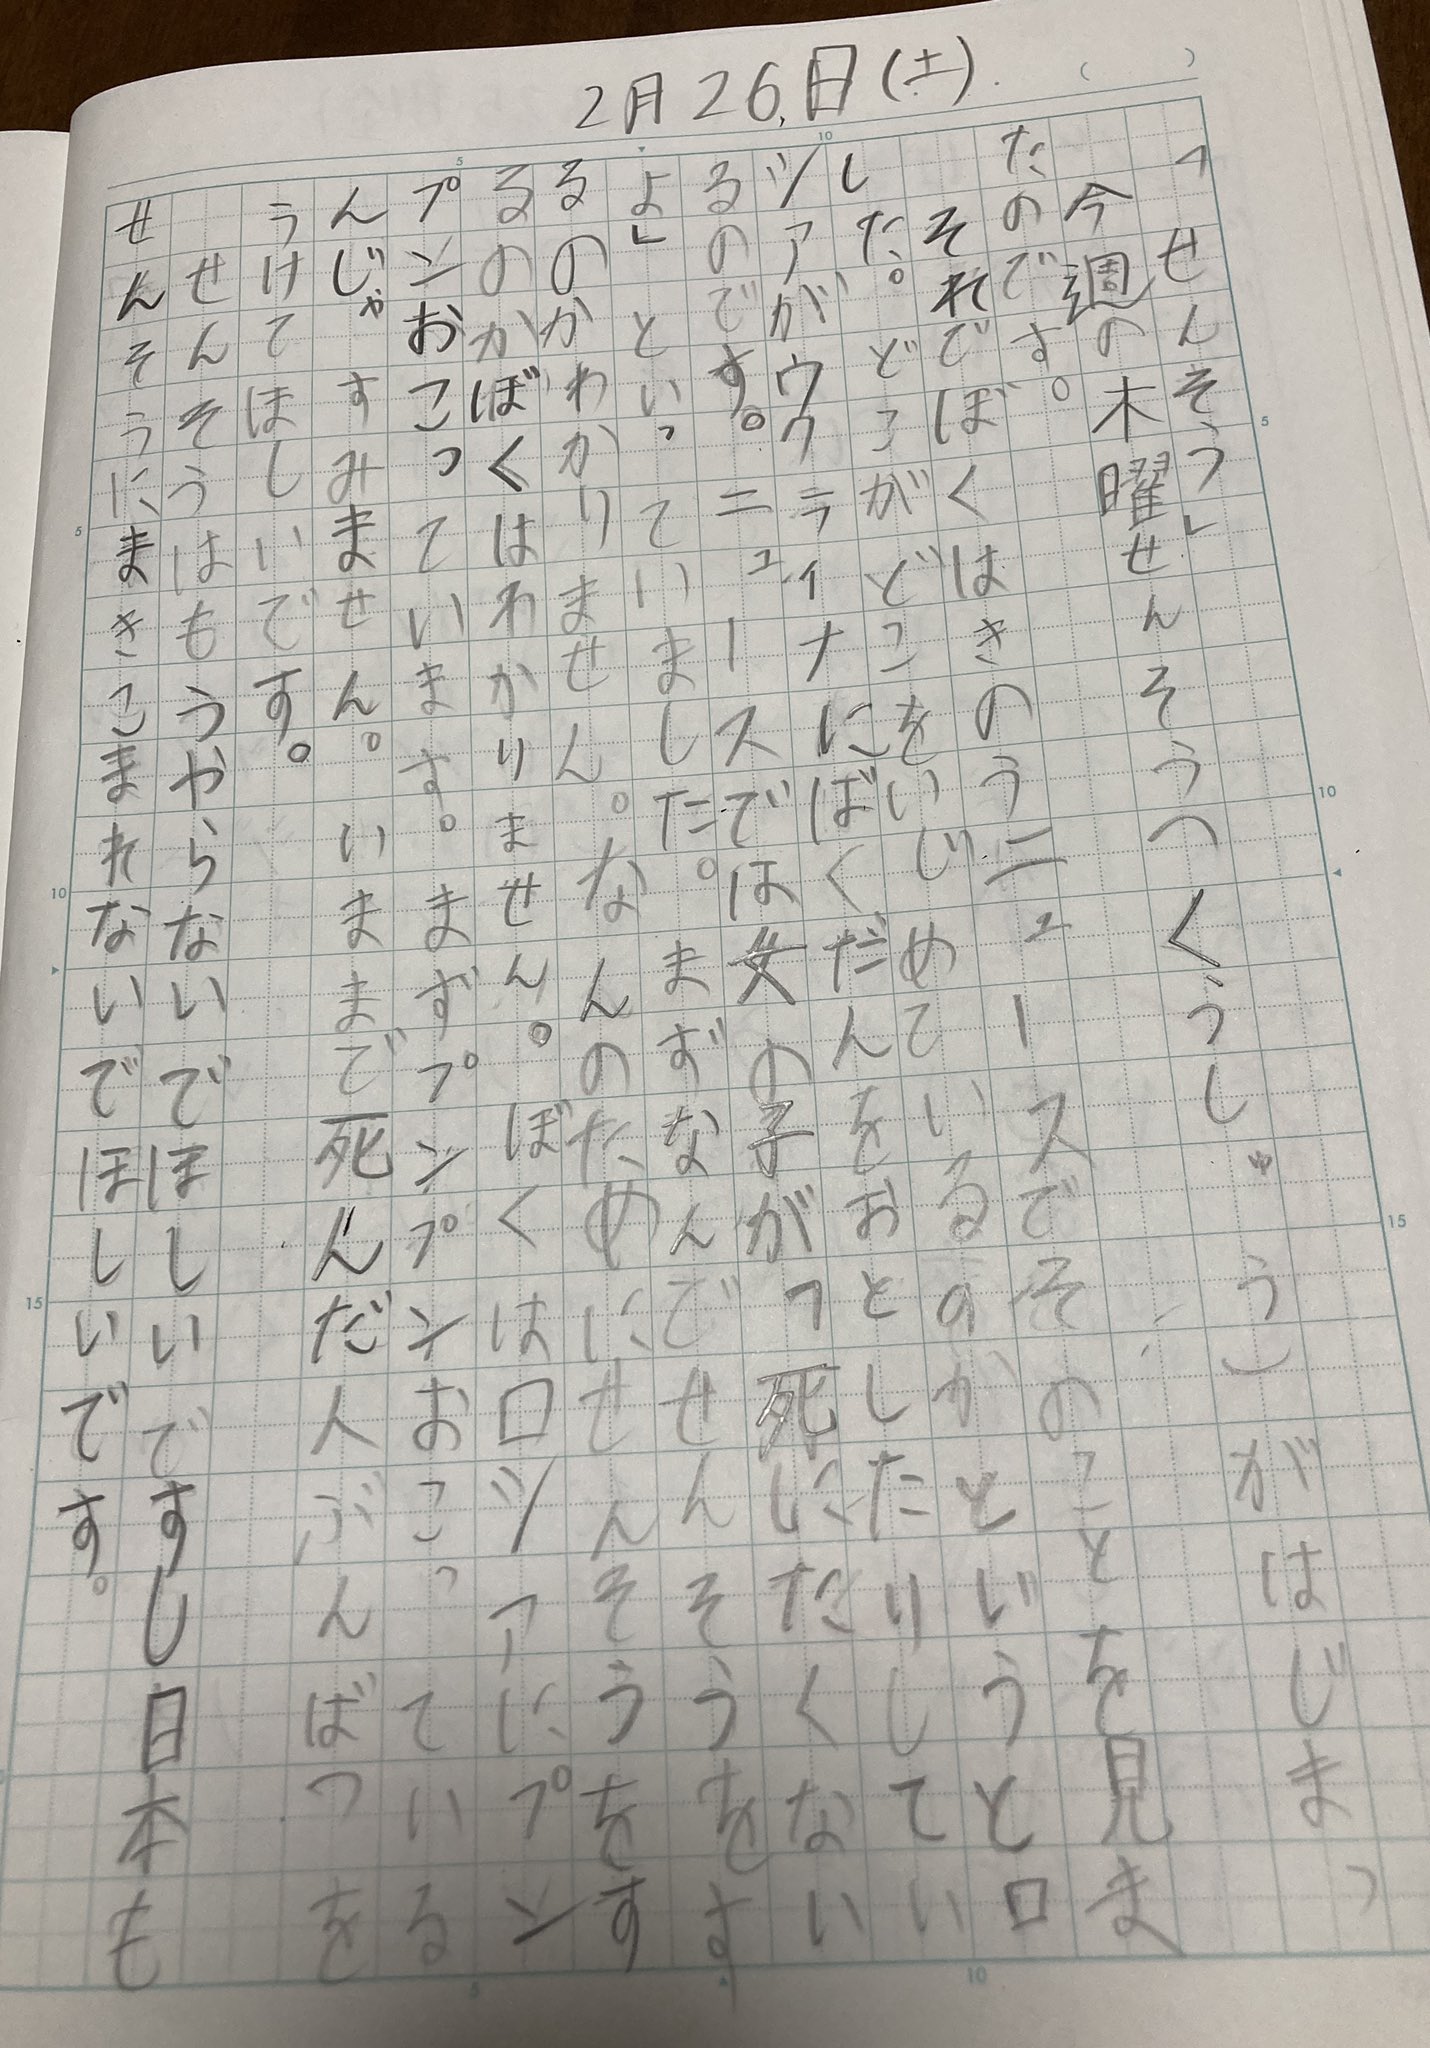 2月26日(土)
「せんそう」
今週の木曜せんそう(くうしゅう)がはじまっ
たのです。
それでぼくはきのうニュースでそのことを見ま
した。どこがどこをいじめているのかというとロ
シアがウクライナにばくだんをおとしたりしてい
るのです。ニュースでは女の子が「死にたくない
よ」といっていました。まずなんでせんそうをす
るのかわかりません。なんのためにせんそうをす
るのかぼくはわかりません。ぼくはロシアにプン
プンおこっています。まずプンプンおこっている
んじゃすみません。いままで死んだ人ぶんばつを
うけてほしいです。
せんそうはもうやらないでほしいですし日本も
せんそうにまきこまれないでほしいです。